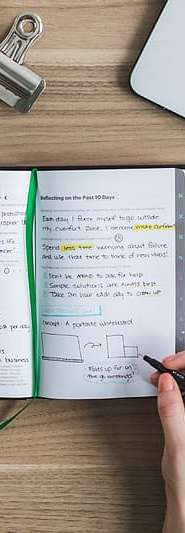 Reflecting on the Past 10 Days
Each day I force myself to go outside
my comfort zone, I become more confident
Spend less time worrying about failure
and use that time to think of new ideas!
Don't be AFRAID to ask for help
Simple solutions are ALWAYS best
Take an hour each day to CLEAN UP
Concept: A portable whiteboard
Folds up for on
the go meetings!
per day
business